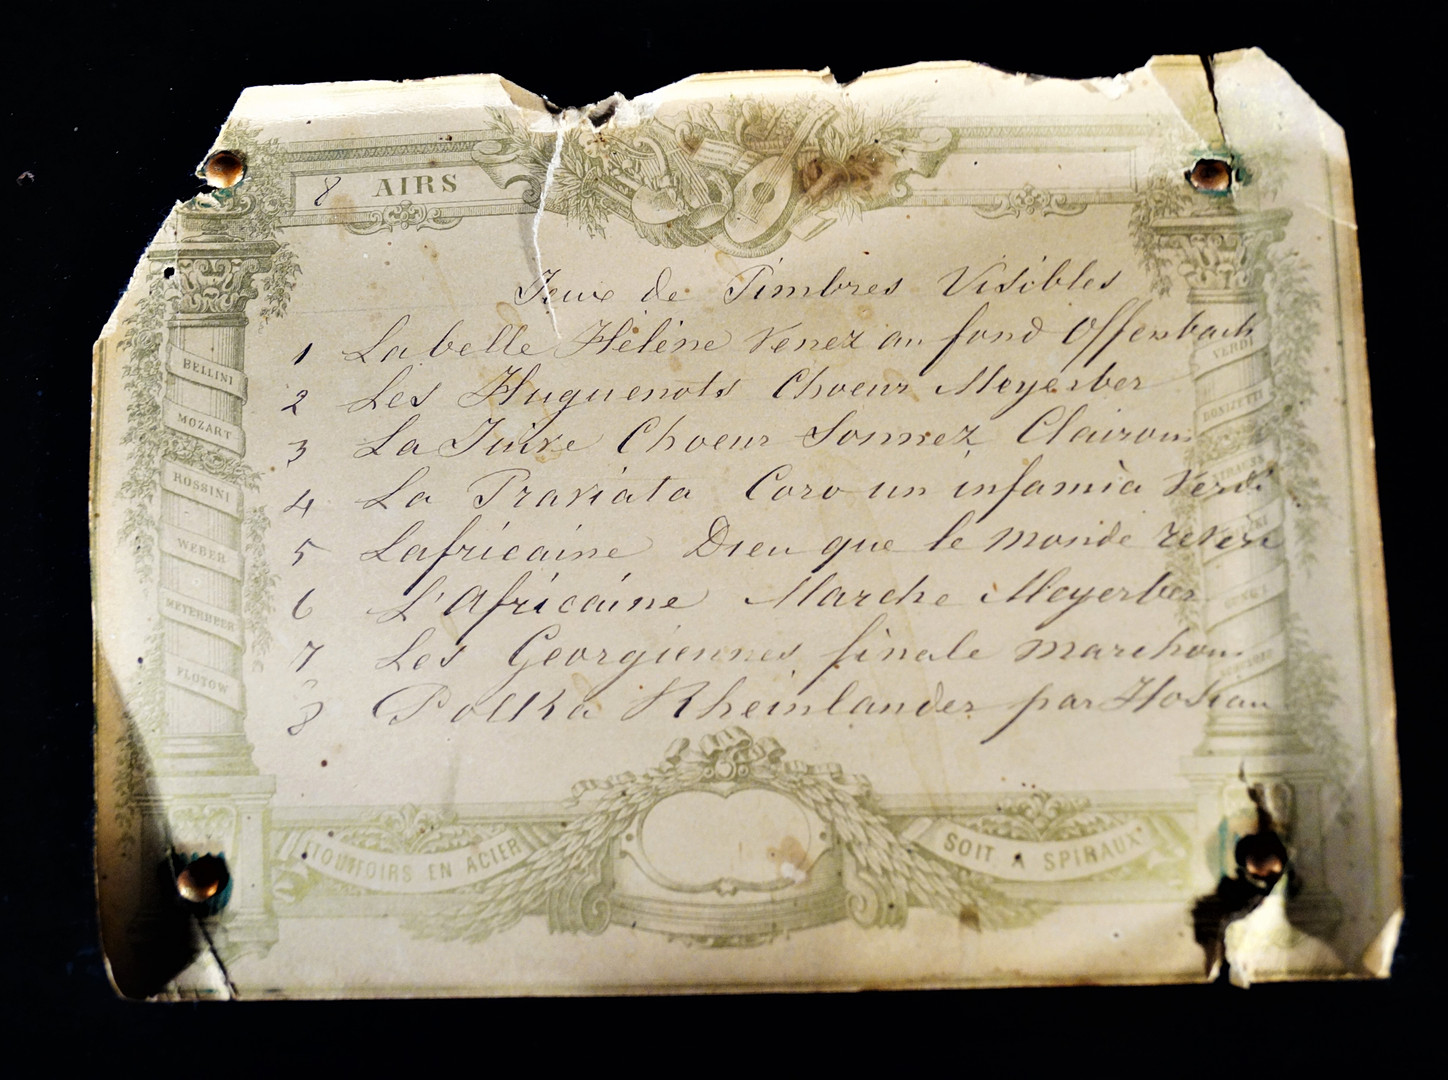 8 AIRS
Jeux de Timbres Visibles
1 La belle Hélène Venez au fond Offenbach
2 Les Huguenots Choeur Meyerber
3 La Juive Choeur Sonnez Clairons
4 La Traviata Coro un infamia Verdi
5 Lafricaine Dieu que le monde revère
6 L'Africaine Marche Meyerber
7 Les Georgiennes finale marchons
8 Polka Rheinlander par
BELLINI
MOZART
ROSSINI
WEBER
MEYERBEER
FLOTOW
VERDI
DONIZETTI
STRAUSS
ETOUFFOIRS EN ACIER
SOIT A SPIRAUX